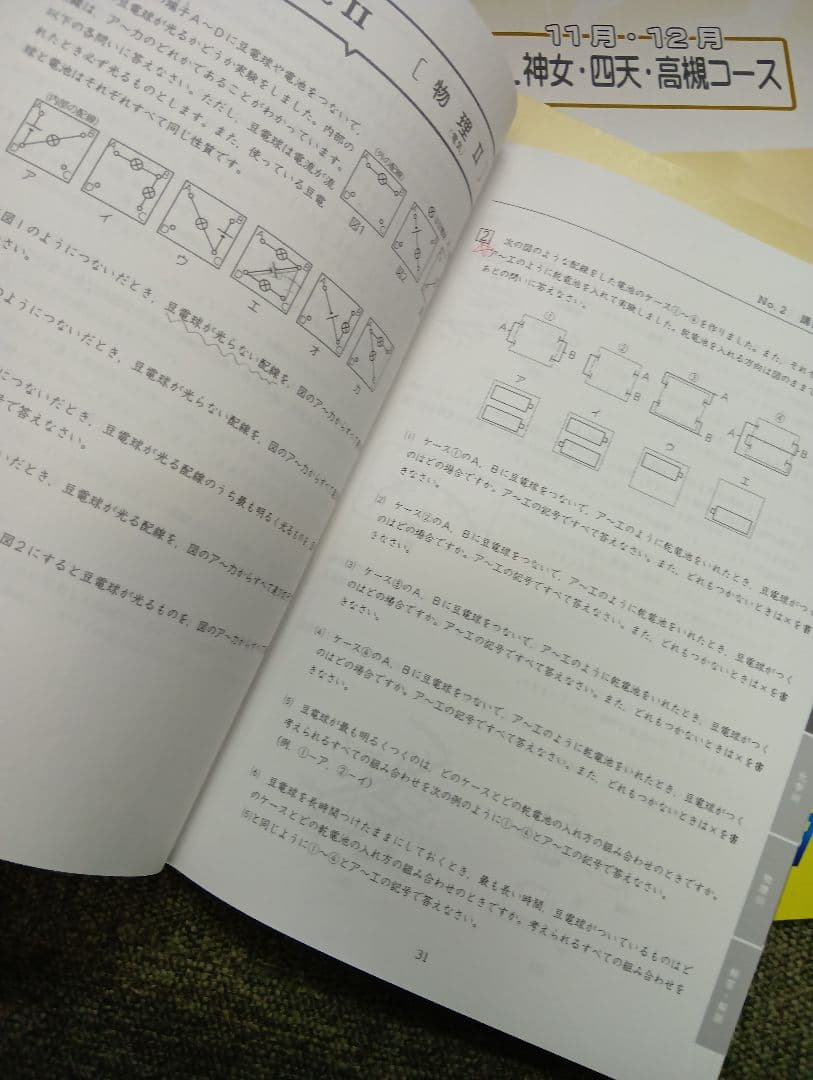 11月・12月
神女・四天・高槻コース
II
〔 物 理 II 〕
(電気)
端子A～Dに豆電球や電池をつないで、
が光るかどうか実験をしました。内部の
線は、ア～カのどれかであることがわかっています。
以下の各問いに答えなさい。ただし、豆電球は電流が流
れたとき必ず光るものとします。また、使っている豆電
球と電池はそれぞれすべて同じ性質です。
(内部の配線)
A
B
C
D
ア
イ
ウ
エ
オ
カ
(外の配線)
図1
図2
図1のようにつないだとき、豆電球が光らない配線を、図のア～カからすべて
さい。
のようにつないだとき、豆電球が光らない配線を、図のア～カからすべて
につないだとき、豆電球が光る配線のうち最も明るく光るものを
号で答えなさい。
いだとき、豆電球が光る配線を、図のア～カからすべて
図2にすると豆電球が光るものを、図のア～カからすべて
No.2
2 次の図のような配線をした電池のケース①～④を作りました。また、それぞ
ア～エのように乾電池を入れて実験しました。乾電池を入れる方向は図のままで
あとの問いに答えなさい。
① A B
② A B
③ A B
④ A B
ア イ ウ エ
(1) ケース①のA、Bに豆電球をつないで、ア～エのように乾電池をいれたとき、豆電球がつく
のはどの場合ですか。ア～エの記号ですべて答えなさい。また、どれもつかないときは×を書
きなさい。
(2) ケース②のA、Bに豆電球をつないで、ア～エのように乾電池をいれたとき、豆電球がつく
のはどの場合ですか。ア～エの記号ですべて答えなさい。また、どれもつかないときは×を書
きなさい。
(3) ケース③のA、Bに豆電球をつないで、ア～エのように乾電池をいれたとき、豆電球がつく
のはどの場合ですか。ア～エの記号ですべて答えなさい。また、どれもつかないときは×を書
きなさい。
(4) ケース④のA、Bに豆電球をつないで、ア～エのように乾電池をいれたとき、豆電球がつく
のはどの場合ですか。ア～エの記号ですべて答えなさい。また、どれもつかないときは×を書
きなさい。
(5) 豆電球が最も明るくつくのは、どのケースとどの乾電池の入れ方の組み合わせのときですか。
考えられるすべての組み合わせを次の例のように①～④とア～エの記号で答えなさい。
(例、①－ア、②－イ)
(6) 豆電球を長時間つけたままにしておくとき、最も長い時間、豆電球がついているものはど
のケースとどの乾電池の入れ方の組み合わせのときですか。考えられるすべての組み合わせを
(5)と同じように①～④とア～エの記号で答えなさい。
31